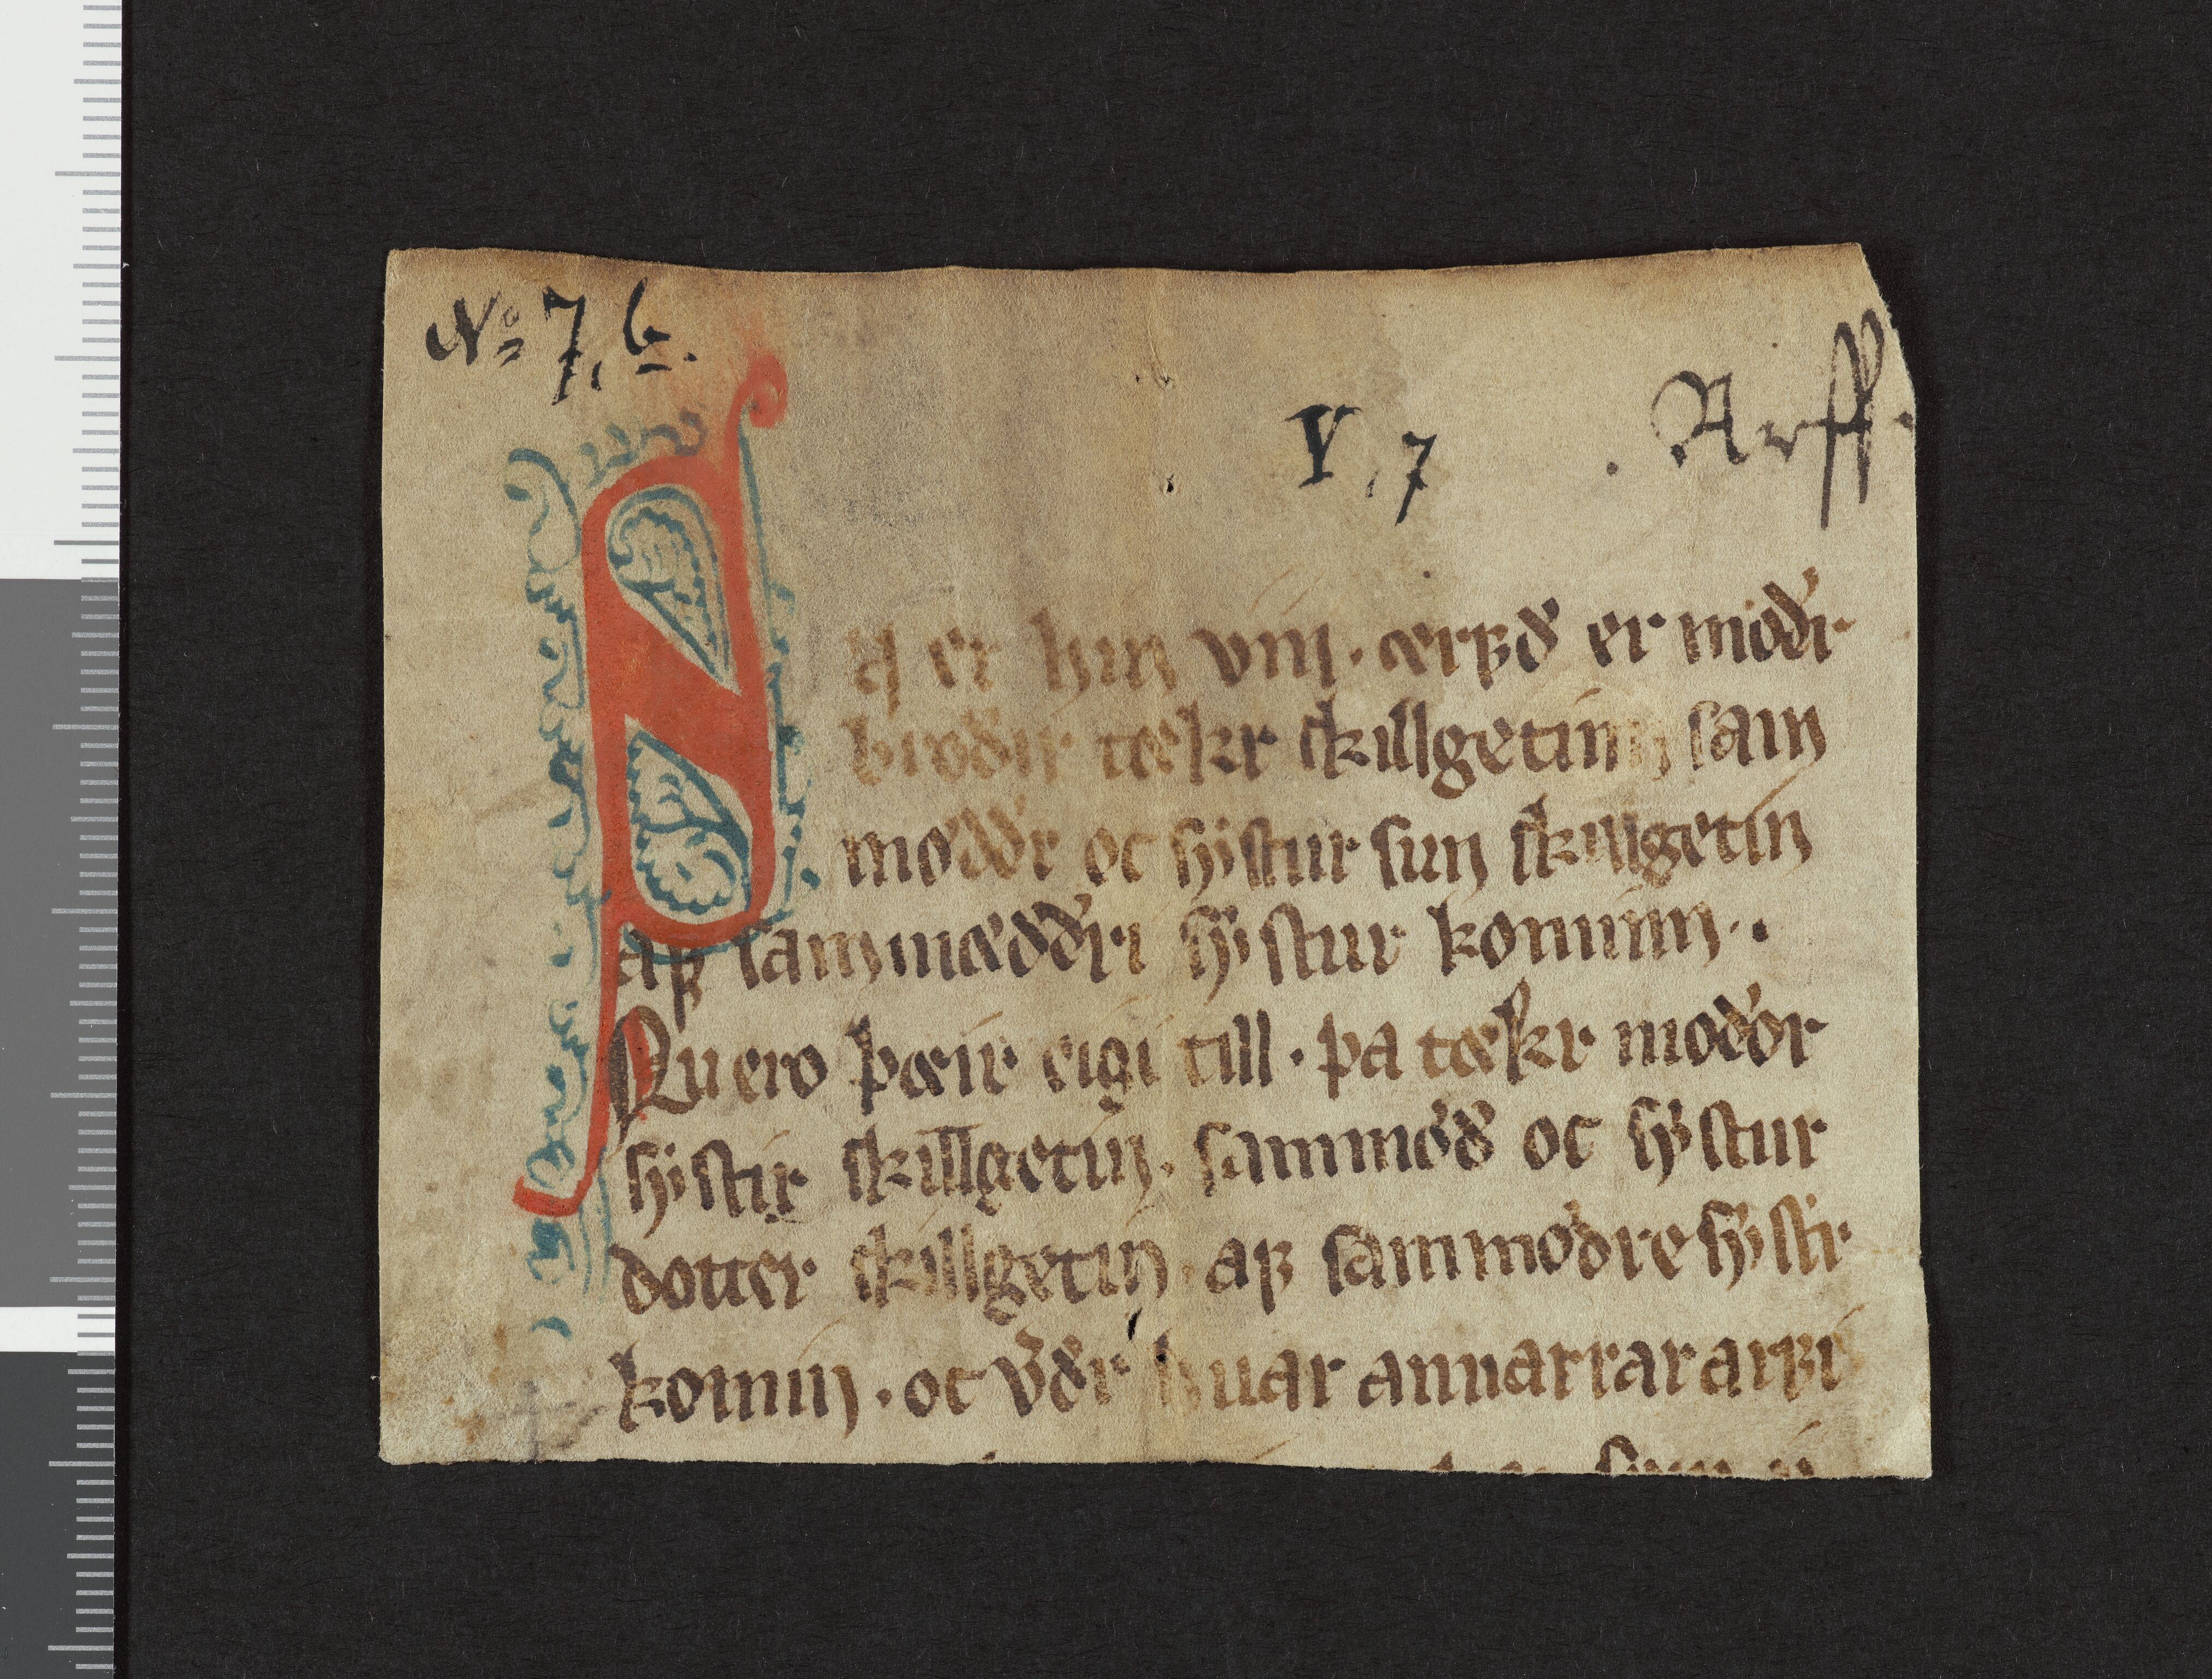 No 7, b.
V, 7 . Arff.
Su er hin viii. ærꝼð er moðr
brøðir tækr skillgetinn sam
møððr oc systur sun skillgetin
aꝼ sammæððri systur kominn..
Nu ero þæir eigi till. þa tækr moðor
systir skillgetin. sammøð oc systur
dotter skillgetin. aꝼ sammøðre systr
komin. oc vðr huar annarrar arꝼi